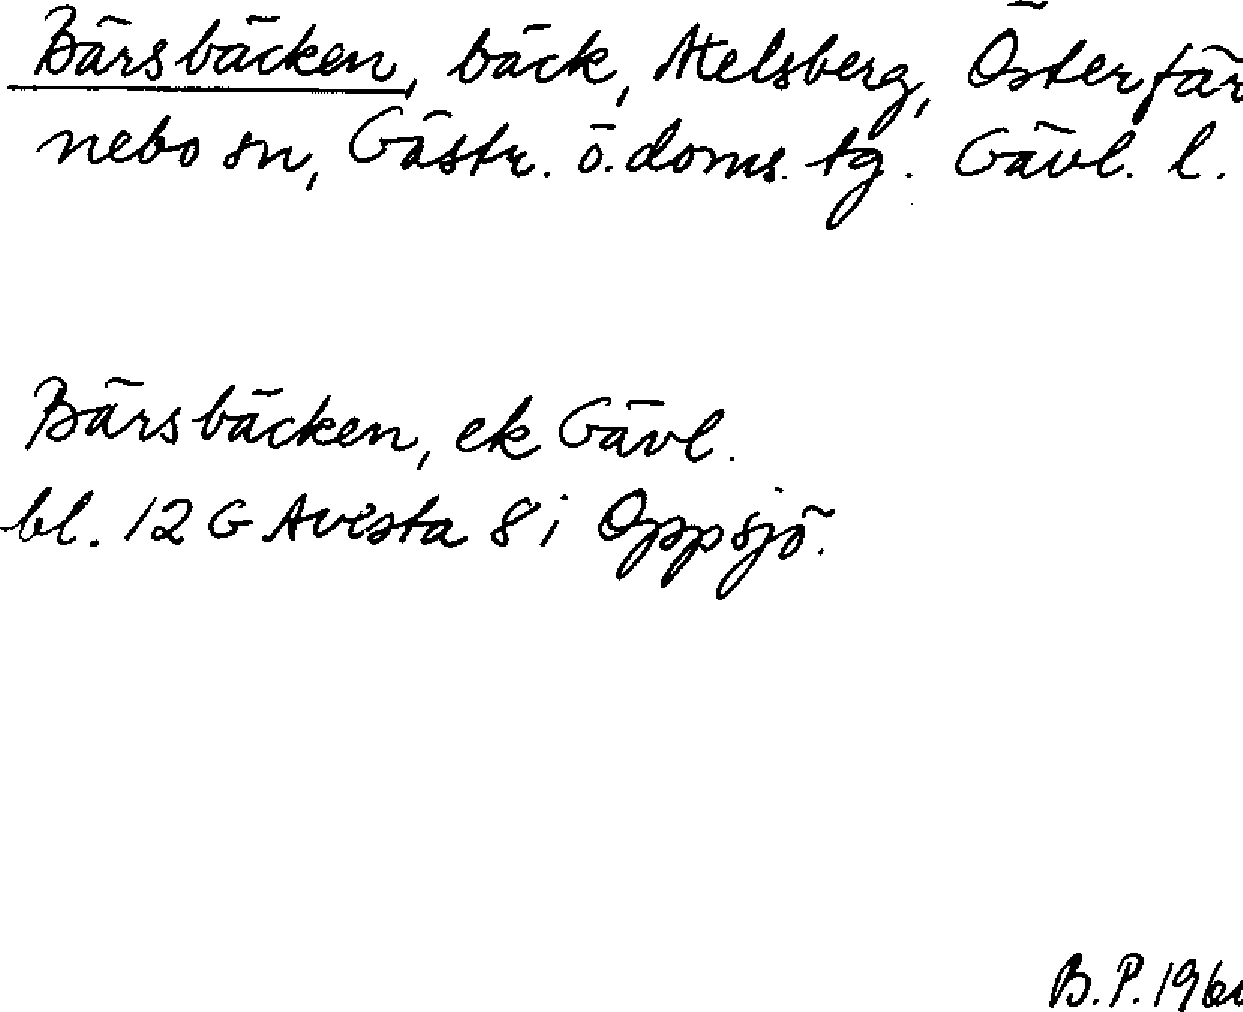 Bärsbäcken, bäck, Attelsberg, Österfär
nebo sn, Gästr. ö. doms. tg. Gävl. l.
Bärsbäcken, ek Gävl.
bl. 12 G Avesta 8 i Oppsjö.
B. P. 196